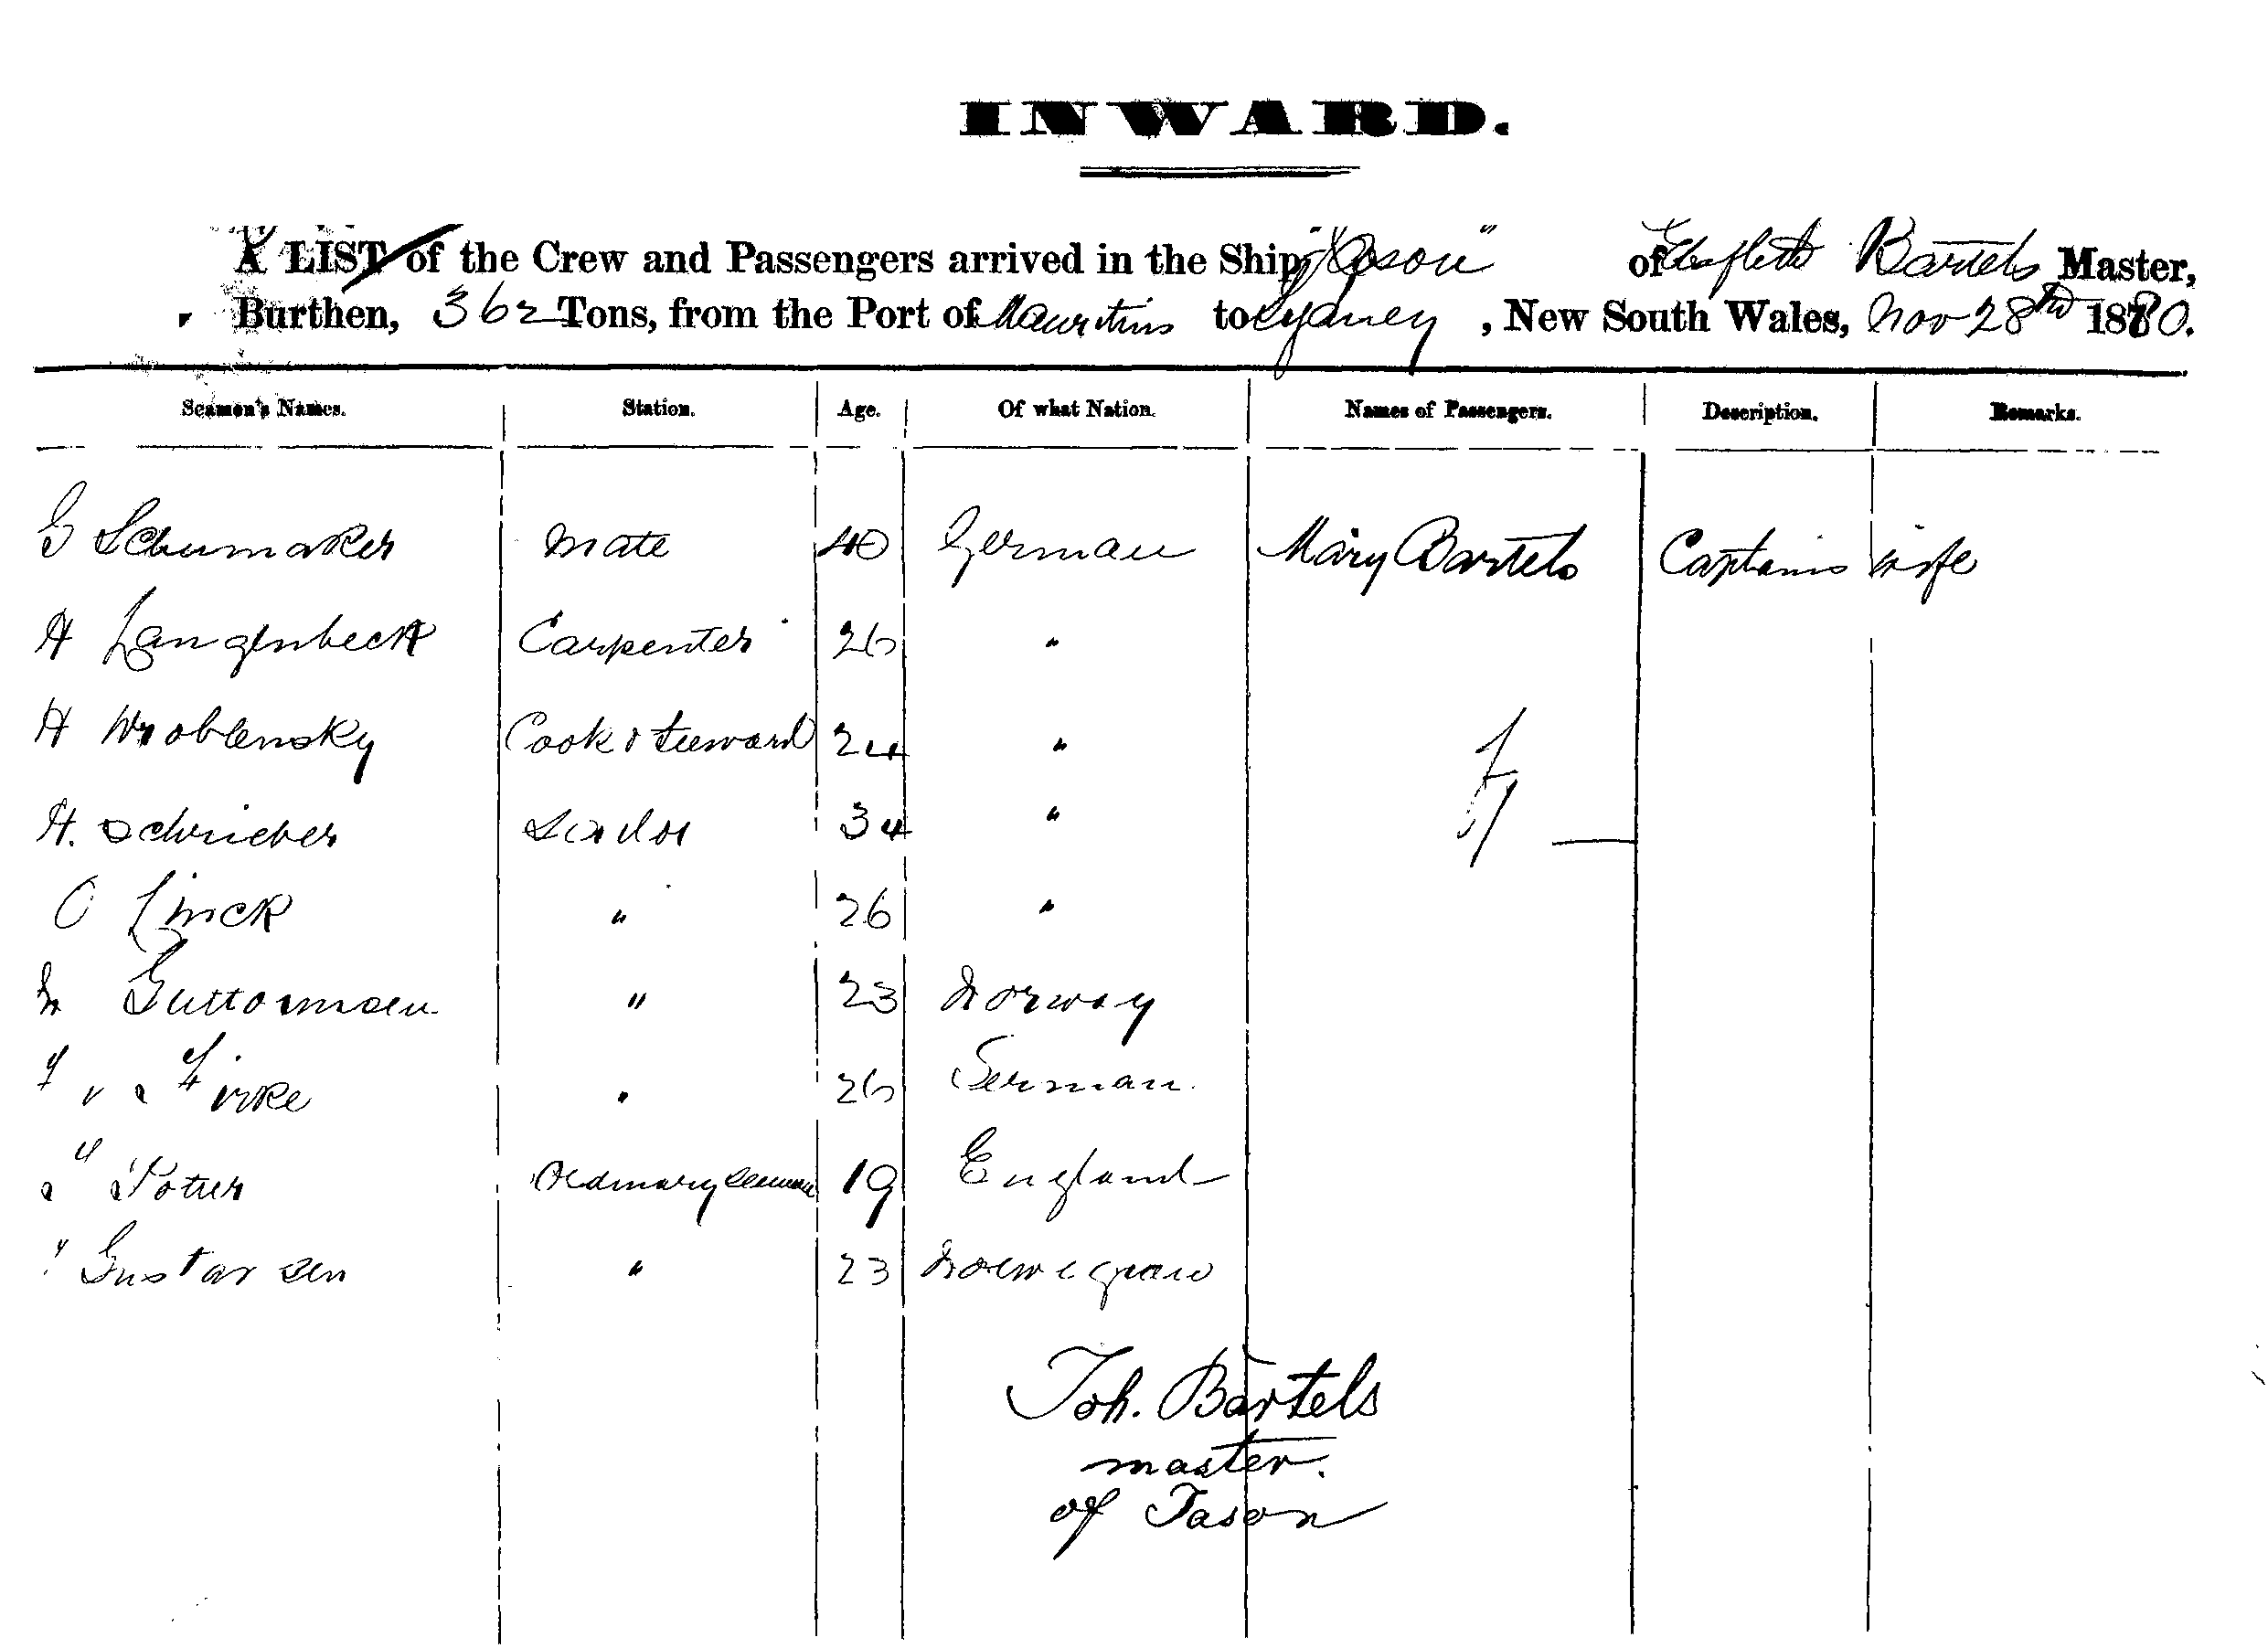 INWARD.
A LIST of the Crew and Passengers arrived in the Ship "Jason" of Elsfleth Bartels Master,
Burthen, 362 Tons, from the Port of Mauritius to Sydney, New South Wales, Nov 28th 1880.
Seamen's Names. Station. Age. Of what Nation. Names of Passengers. Description. Remarks.
G Schumaker mate 40 German Mary Bartels Captains wife
H Langenbeck Carpenter 26 "
H Wroblensky Cook & Steward 24 "
H. Schrieber Sailor 34 "
O Linck " 26 "
Guttormsen " 23 Norway
Firke " 26 German
Ordinary Seaman 19 England
Gustavsen " 23 Norwegian
Joh. Bartels
master.
of Jason